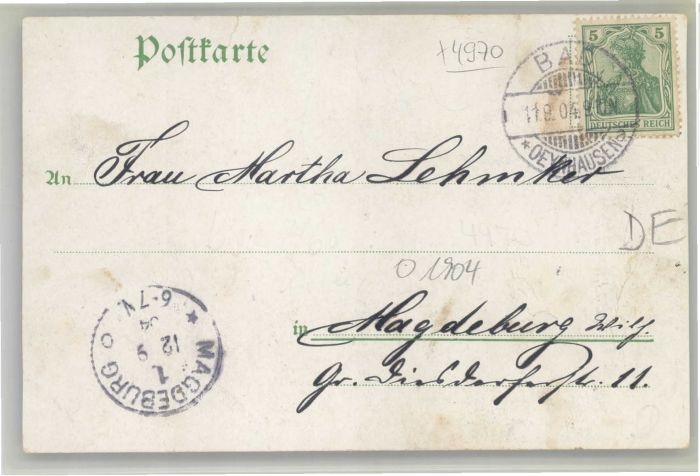 Postkarte
+4970
5 5
DEUTSCHES REICH
BAD
11.9.04.
* OEYNHAUSEN
An Frau Martha Lehmker
DE
O 1904
in Magdeburg Wilh.
Gr. Diesdorferstr. 11.
* MAGDEBURG
1
12 9
04
6-7N.